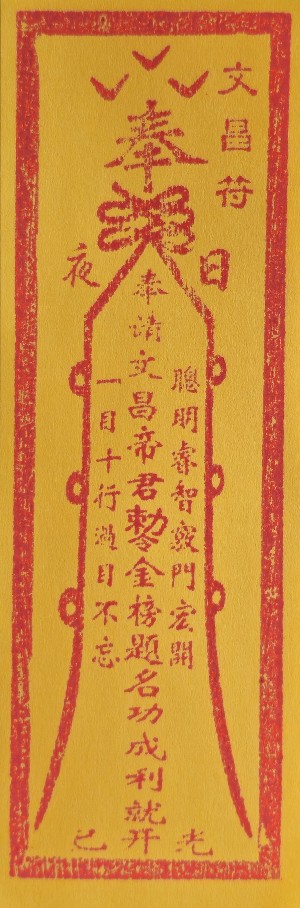 文昌符
奉
日
夜
聰明睿智竅門宏開
奉請文昌帝君勅令金榜題名功成利就
一目十行過目不忘
光
开
己